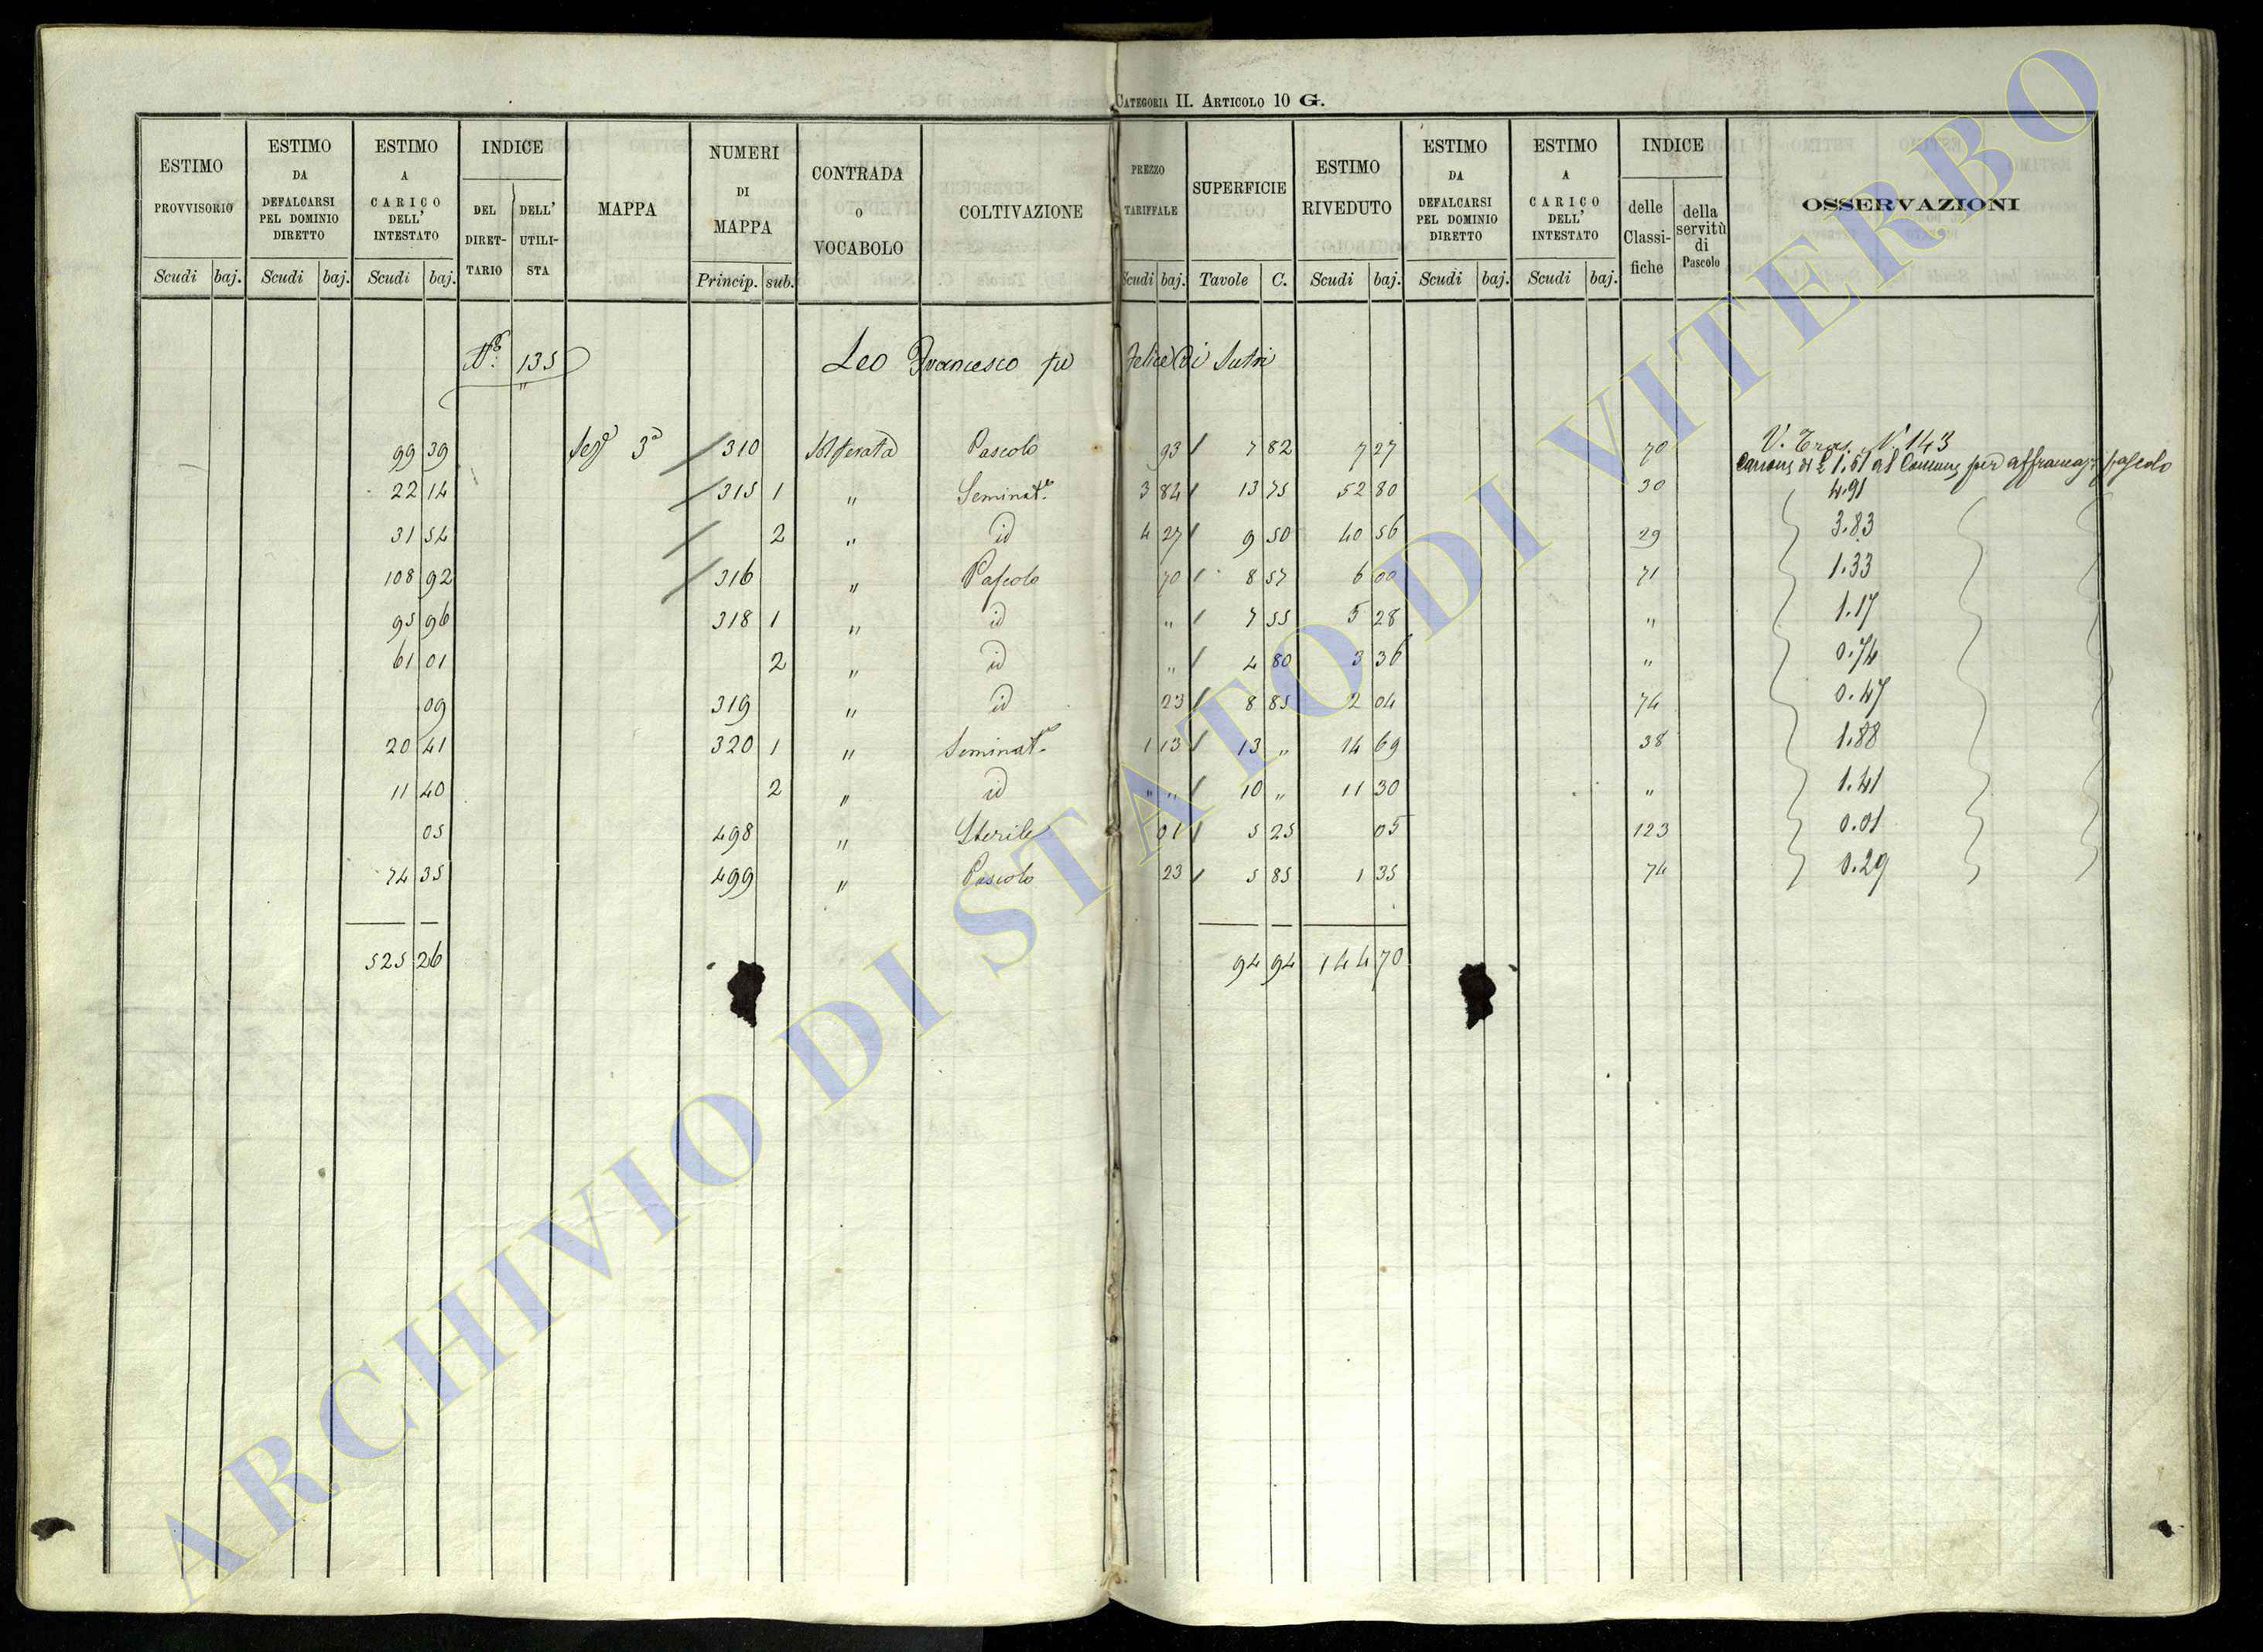 CATEGORIA II. ARTICOLO 10 G.
ESTIMO PROVVISORIO Scudi baj.
ESTIMO DA DEFALCARSI PEL DOMINIO DIRETTO Scudi baj.
ESTIMO A CARICO DELL' INTESTATO Scudi baj.
INDICE DEL DIRET-TARIO DELL' UTILI-STA
MAPPA
NUMERI DI MAPPA Princip. sub.
CONTRADA O VOCABOLO
COLTIVAZIONE
PREZZO TARIFFALE Scudi baj.
SUPERFICIE Tavole C.
ESTIMO RIVEDUTO Scudi baj.
ESTIMO DA DEFALCARSI PEL DOMINIO DIRETTO Scudi baj.
ESTIMO A CARICO DELL' INTESTATO Scudi baj.
INDICE delle Classi-fiche della servitù di Pascolo
OSSERVAZIONI
135 Leo Francesco fu Felice di Sutri
V. Tras. N. 143
99 39 Sez.e 3a 310 Pascolo 93 7 82 7 27 70 Canone di £ 1.51 al Comune per affrancaz. pascolo
22 14 315 1 " Seminat.o 3 84 13 75 52 80 30 4.91
31 54 2 " id 4 27 9 50 40 56 29 3.83
108 92 316 " Pascolo 70 8 57 6 00 71 1.33
95 96 318 1 " id " 7 55 5 28 " 1.17
61 01 2 " id " 4 80 3 36 " 0.74
09 319 " id 23 8 85 2 04 74 0.47
20 41 320 1 " Seminat.o 1 13 13 " 14 69 38 1.88
11 40 2 " id " " 10 " 11 30 " 1.41
05 498 " Sterile 01 5 25 05 123 0.01
74 35 499 " Pascolo 23 5 85 1 35 74 0.29
525 26 94 94 144 70
ARCHIVIO DI STATO DI VITERBO